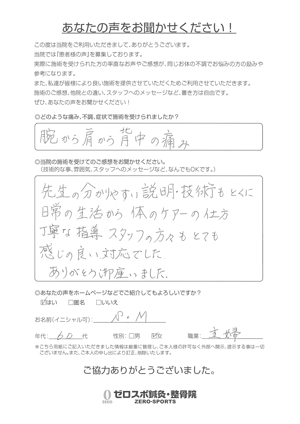 あなたの声をお聞かせください！
この度は当院をご利用いただきまして、ありがとうございます。
当院では「患者様の声」を募集しております。
実際に施術を受けられた方の率直なお声やご感想が、同じお体の不調でお悩みの方の励みや
参考になります。
また、私達が皆様により良い施術を提供させていただくためにご利用させていただきます。
施術のご感想、他院との違い、スタッフへのメッセージなど、書き方は自由です。
ぜひ、あなたの声をお聞かせください！
○どのような痛み、不調、症状で施術を受けられましたか？
腕から肩から背中の痛み
○当院の施術を受けてのご感想をお聞かせください。
（技術的な事、雰囲気、スタッフへのメッセージなど、なんでもOKです。）
先生の分かりやすい説明・技術もとくに
日常の生活から体のケアーの仕方
丁寧な指導 スタッフの方々もとても
感じの良い対応でした
ありがとう御座いました。
○あなたの声をホームページなどでご紹介してもよろしいですか？
☑はい □匿名 □いいえ
お名前(イニシャル可)： S・M
年代： 60 代 性別：□男 ☑女 職業： 主婦
※こちら用紙にご記入いただきました情報は厳重に管理し、ご本人様の許可なく外部へ開示、提示する事は一切
ございません。また、ご本人の申し出により訂正、削除いたします。
ご協力ありがとうございました。
ゼロスポ鍼灸・整骨院
ZERO-SPORTS